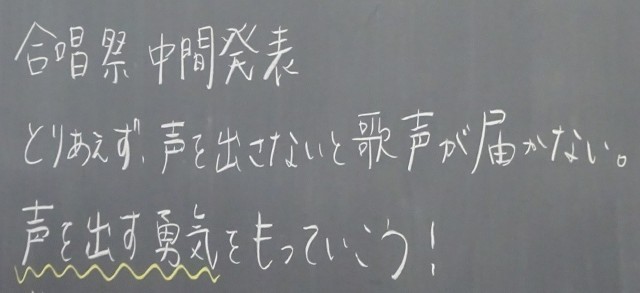 合唱祭 中間発表
とりあえず、声を出さないと歌声が届かない。
声を出す勇気をもっていこう!